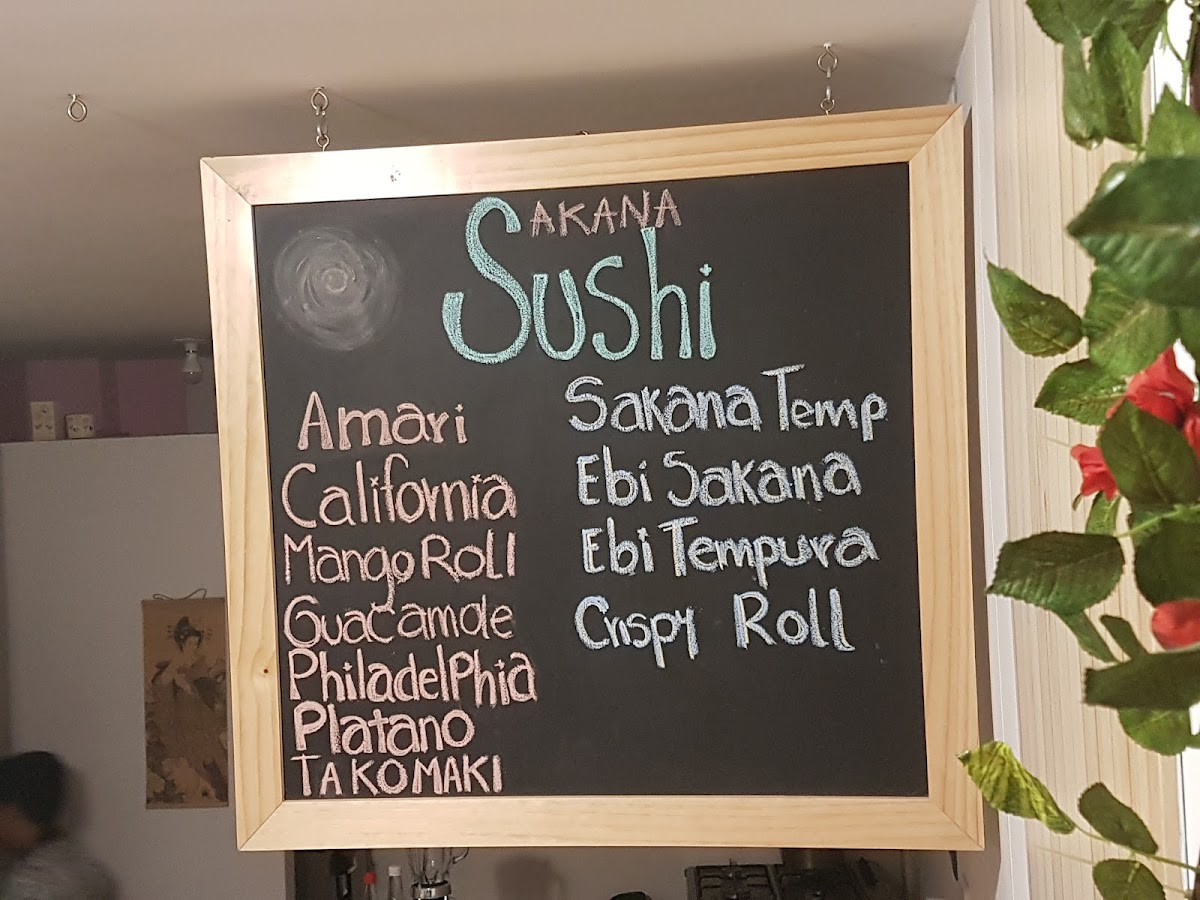 SAKANA
Sushi
Amari
California
Mango Roll
Guacamole
Philadelphia
Platano
TAKOMAKI
Sakana Temp
Ebi Sakana
Ebi Tempura
Crispy Roll